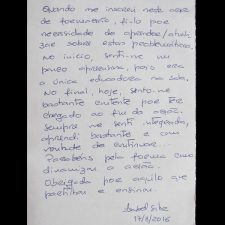 Quando me inscrevi nesta acção
de formação, fi-lo por
necessidade de aprender/atuali-
zar sobre estas problemáticas.
No início, senti-me um
pouco apreensiva, pois era
a única educadora na sala.
No final, hoje, sento-me
bastante contente por ter
chegado ao fim da acção.
Sempre me senti integrada,
aprendi bastante e com
vontade de continuar...
Parabéns pela forma como
dinamizou a acção.
Obrigada por aquilo que
partilhou e ensinou.
17/3/2016